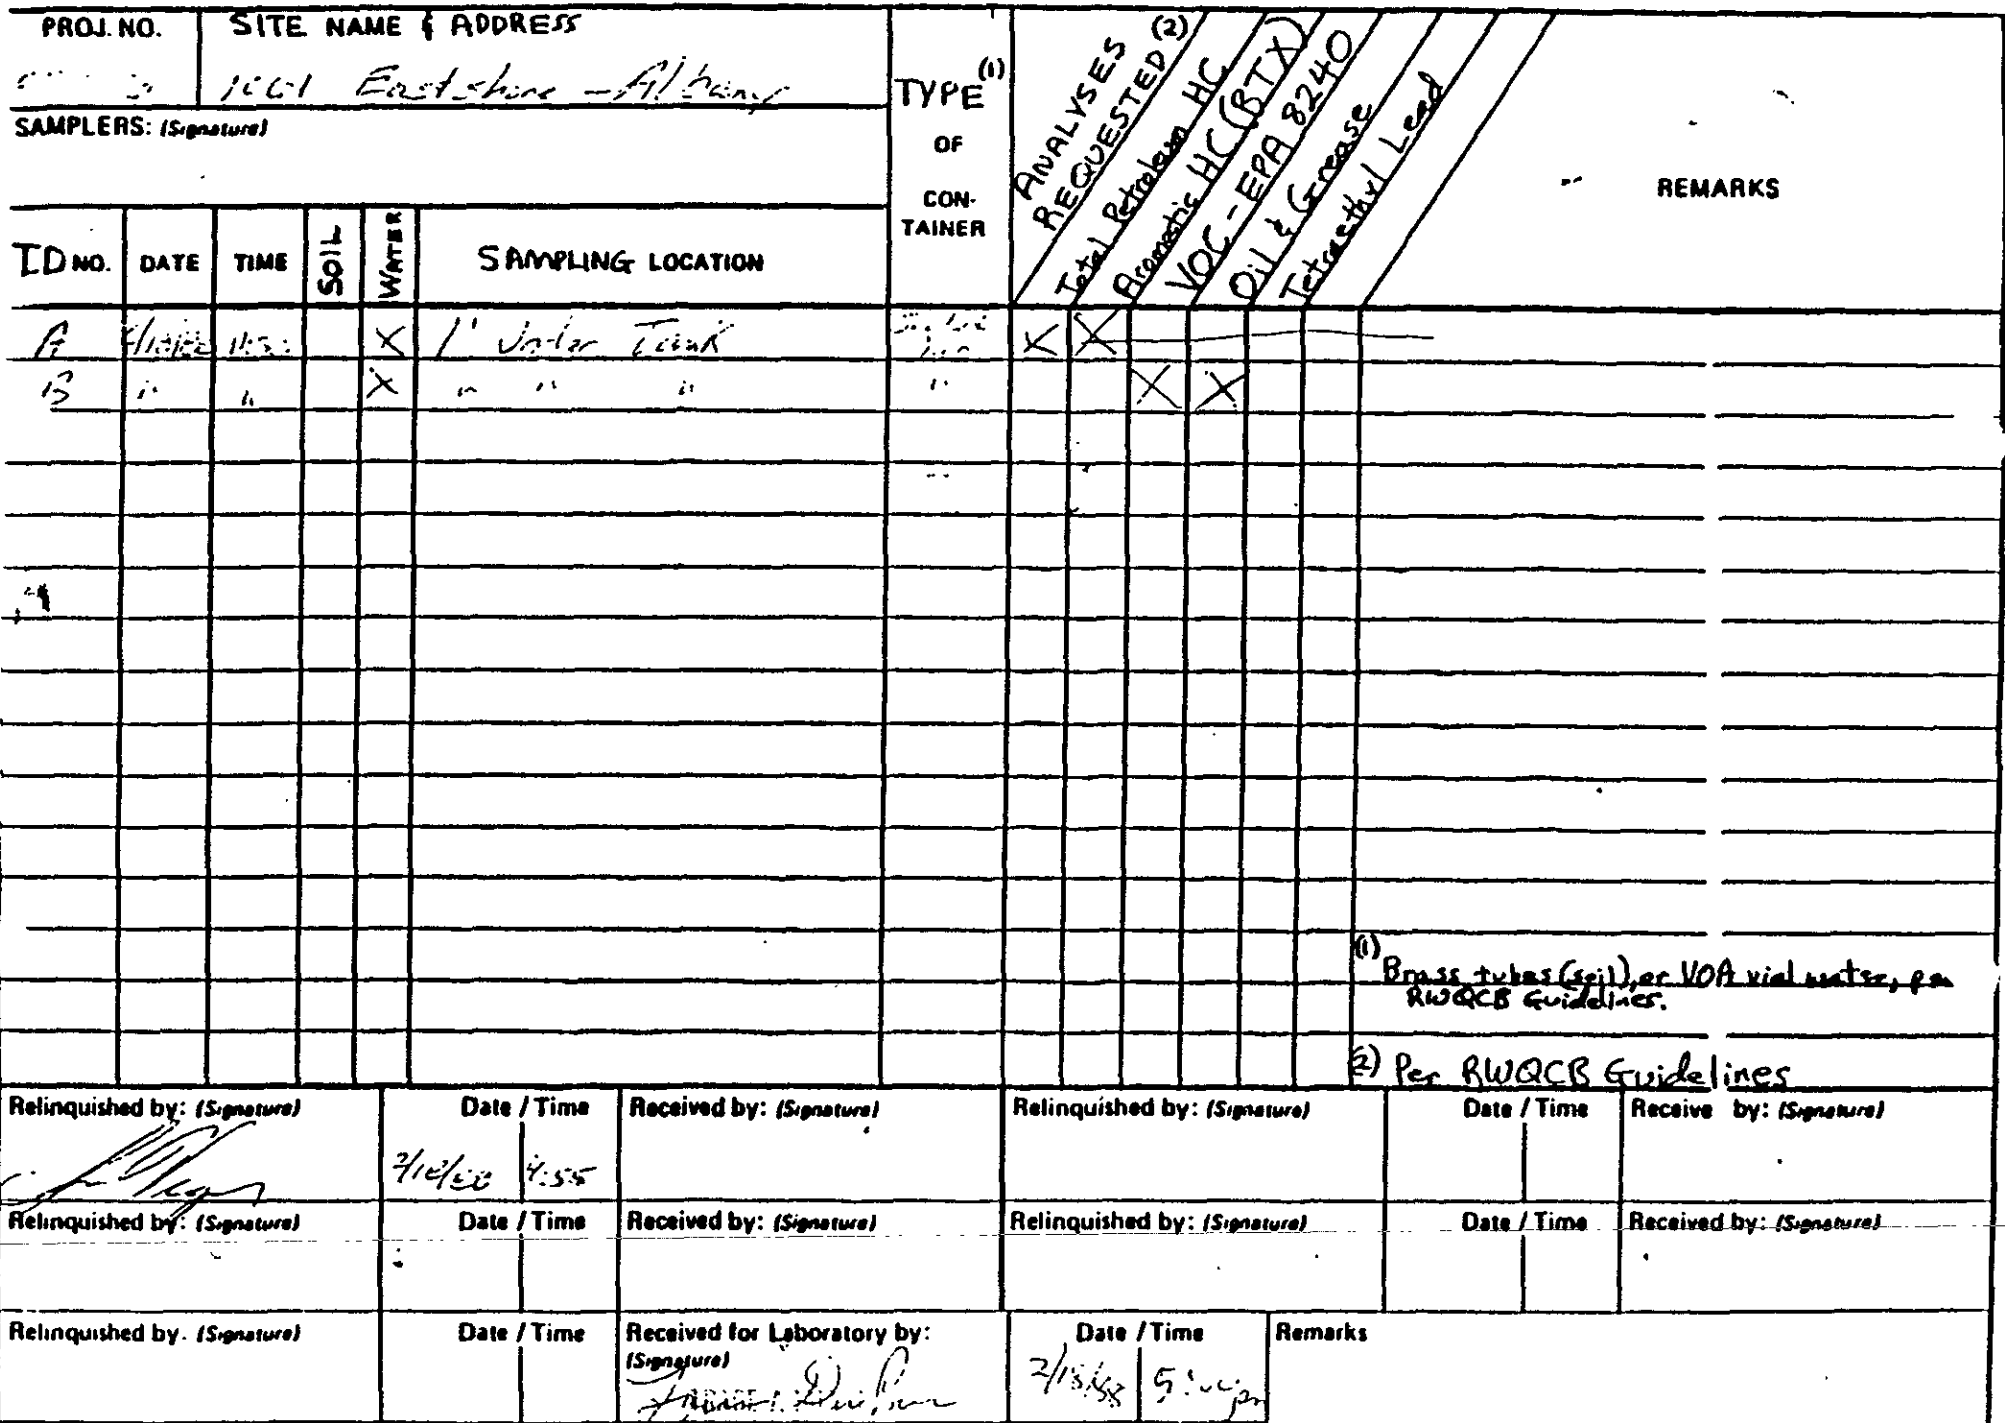 PROJ. NO. SITE NAME & ADDRESS
Eastshore - Albany
SAMPLERS: (Signature)
TYPE (1)
OF
CON-
TAINER
ANALYSES
REQUESTED (2)
Total Petroleum HC
Aromatic HC (BTX)
VOC - EPA 8240
Oil & Grease
Tetraethyl Lead
REMARKS
ID NO. DATE TIME SOIL WATER SAMPLING LOCATION
A X 1' Under Tank X X
B " " X " " " " X X
(1)
Brass tubes (soil), or VOA vial water, per
RWQCB Guidelines.
(2) Per RWQCB Guidelines
Relinquished by: (Signature) Date / Time Received by: (Signature) Relinquished by: (Signature) Date / Time Receive by: (Signature)
4:55
Relinquished by: (Signature) Date / Time Received by: (Signature) Relinquished by: (Signature) Date / Time Received by: (Signature)
Relinquished by. (Signature) Date / Time Received for Laboratory by: Date / Time Remarks
(Signature)